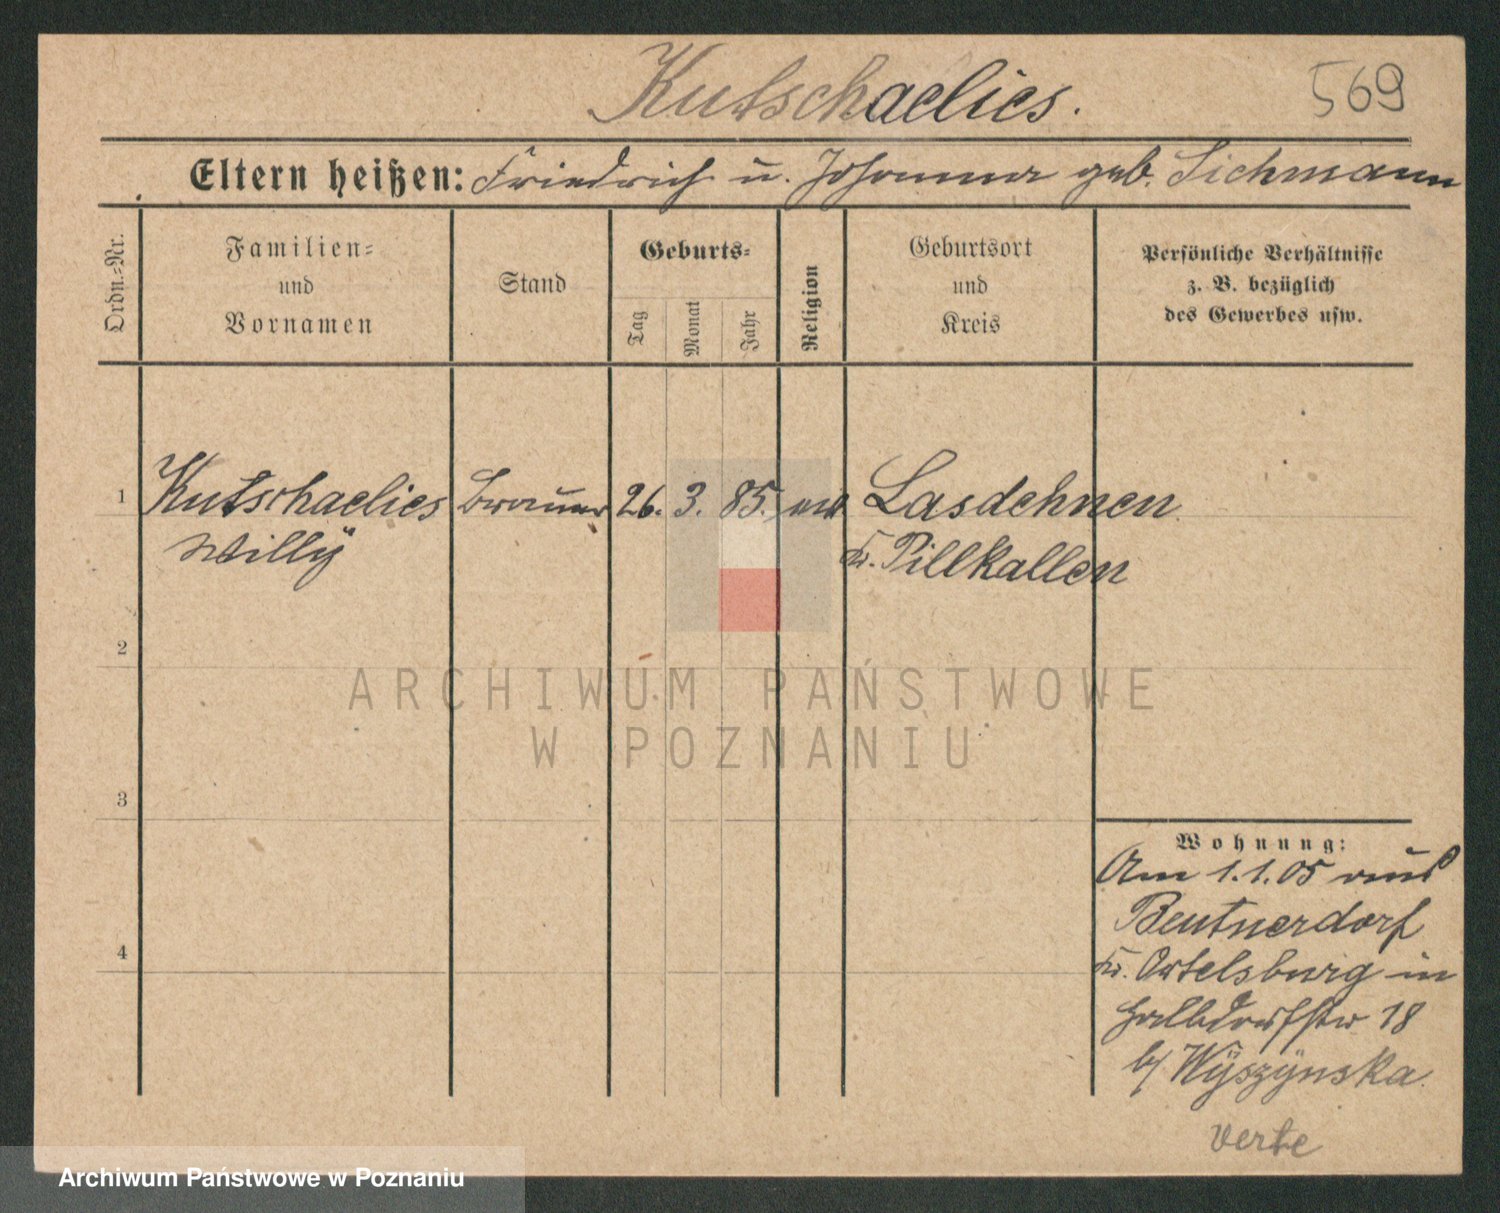 Kutschaelies.
569
Eltern heißen: Friedrich u. Johanna geb. Sichmann
Ordn.=Nr.
Familien=
und
Vornamen
Stand
Geburts=
Tag
Monat
Jahr
Religion
Geburtsort
und
Kreis
Persönliche Verhältnisse
z. B. bezüglich
des Gewerbes usw.
1 Kutschaelies Brauer 26. 3. 85. ev Lasdehnen
Willÿ Kr. Pillkallen
2
3
4
Wohnung:
Am 1.1.05 aus
Beutnerdorf
Kr. Ortelsburg in
Halbdorfstr 18
b/ Wÿszÿnska.
ARCHIWUM PAŃSTWOWE
W POZNANIU
Archiwum Państwowe w Poznaniu